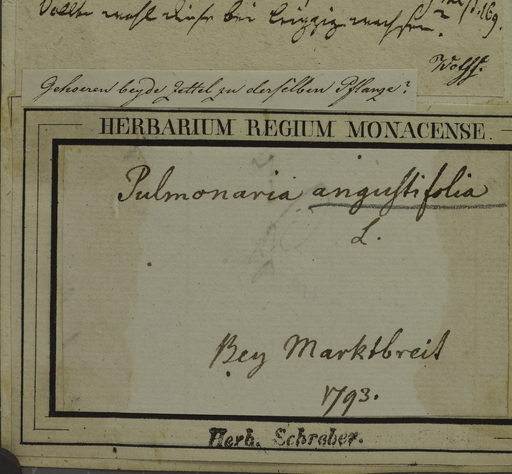 Sollte wohl diese bei Leipzig wachsen. 169.
Wolff.
Gehoeren beyde Zettel zu derselben Pflanze?
HERBARIUM REGIUM MONACENSE.
Pulmonaria angustifolia
L.
Bey Marktbreit
1793.
Herb. Schreber.